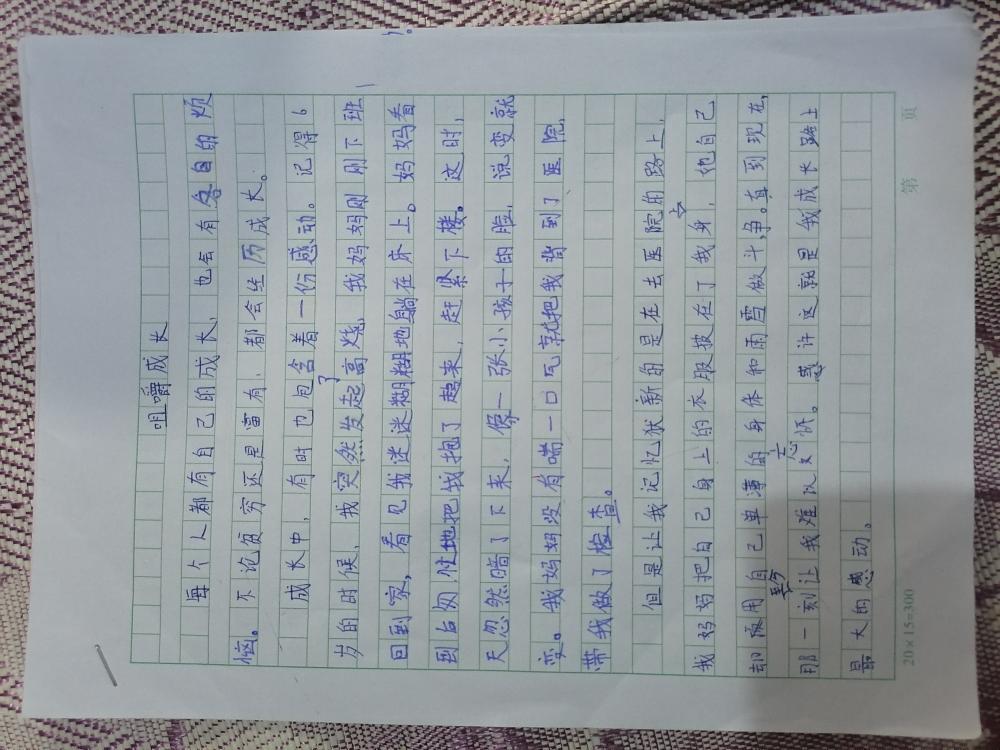 咀嚼成长
每个人都有自己的成长，也会有各自的烦
恼。不论贫穷还是富有，都会经历成长。
成长中，有时也包含着一份感动。记得6
岁的时候，我突然发起了高烧，我妈妈刚刚下班
回到家，看见我迷迷糊糊地躺在床上。妈妈看
到后匆忙地把我抱了起来，赶紧下楼。这时，
天忽然暗了下来，像一张小孩子的脸，说变就
变。我妈妈没有喘一口气就把我背到了医院，
带我做了检查。
但是让我记忆犹新的是在去医院的路上，
我妈妈把自己身上的衣服披在了我身上，她自己
却用自己单薄的身体和雨雪做斗争。直到现在，
那一刻让我难以忘怀。或许这就是我成长路上
最大的感动。
20×15=300
第 页